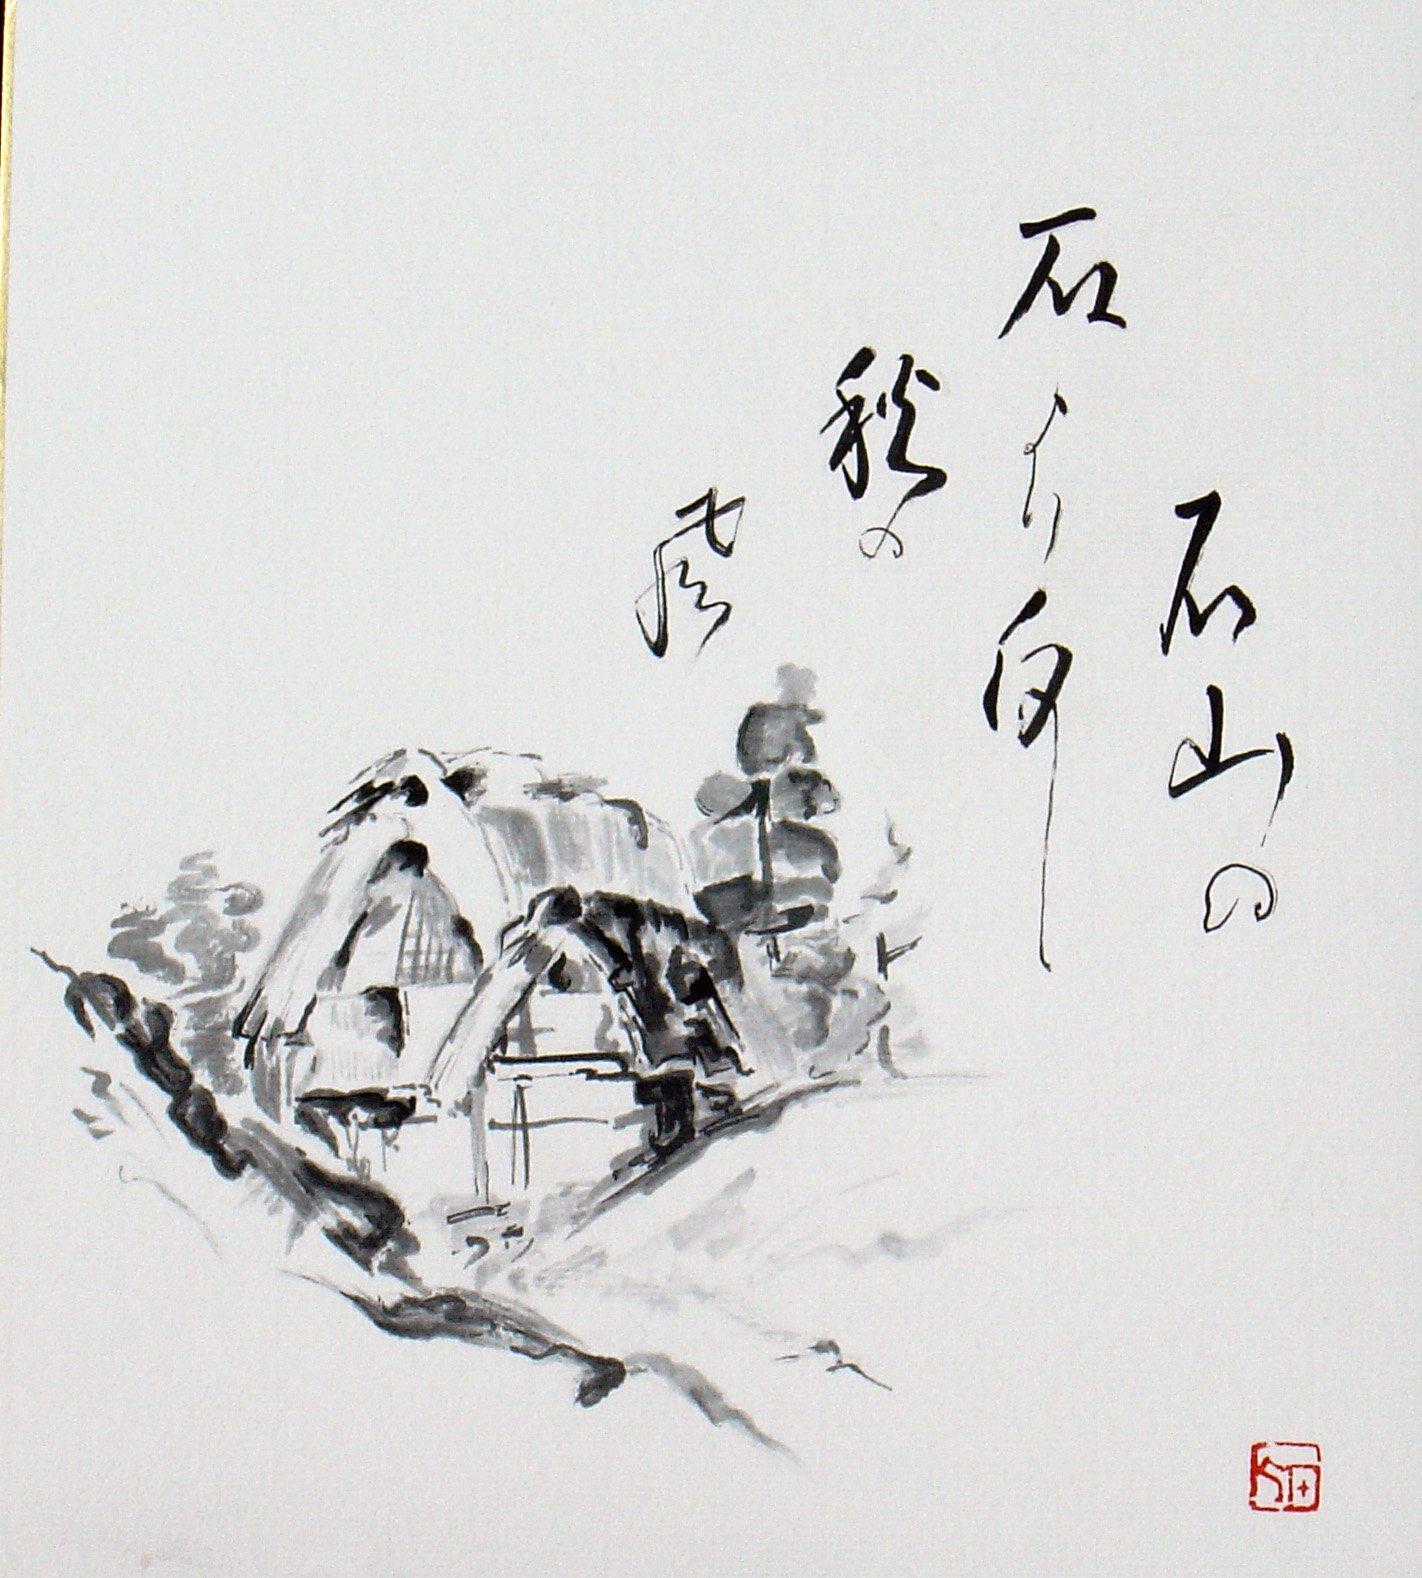 石山の
石より白し
秋の
風